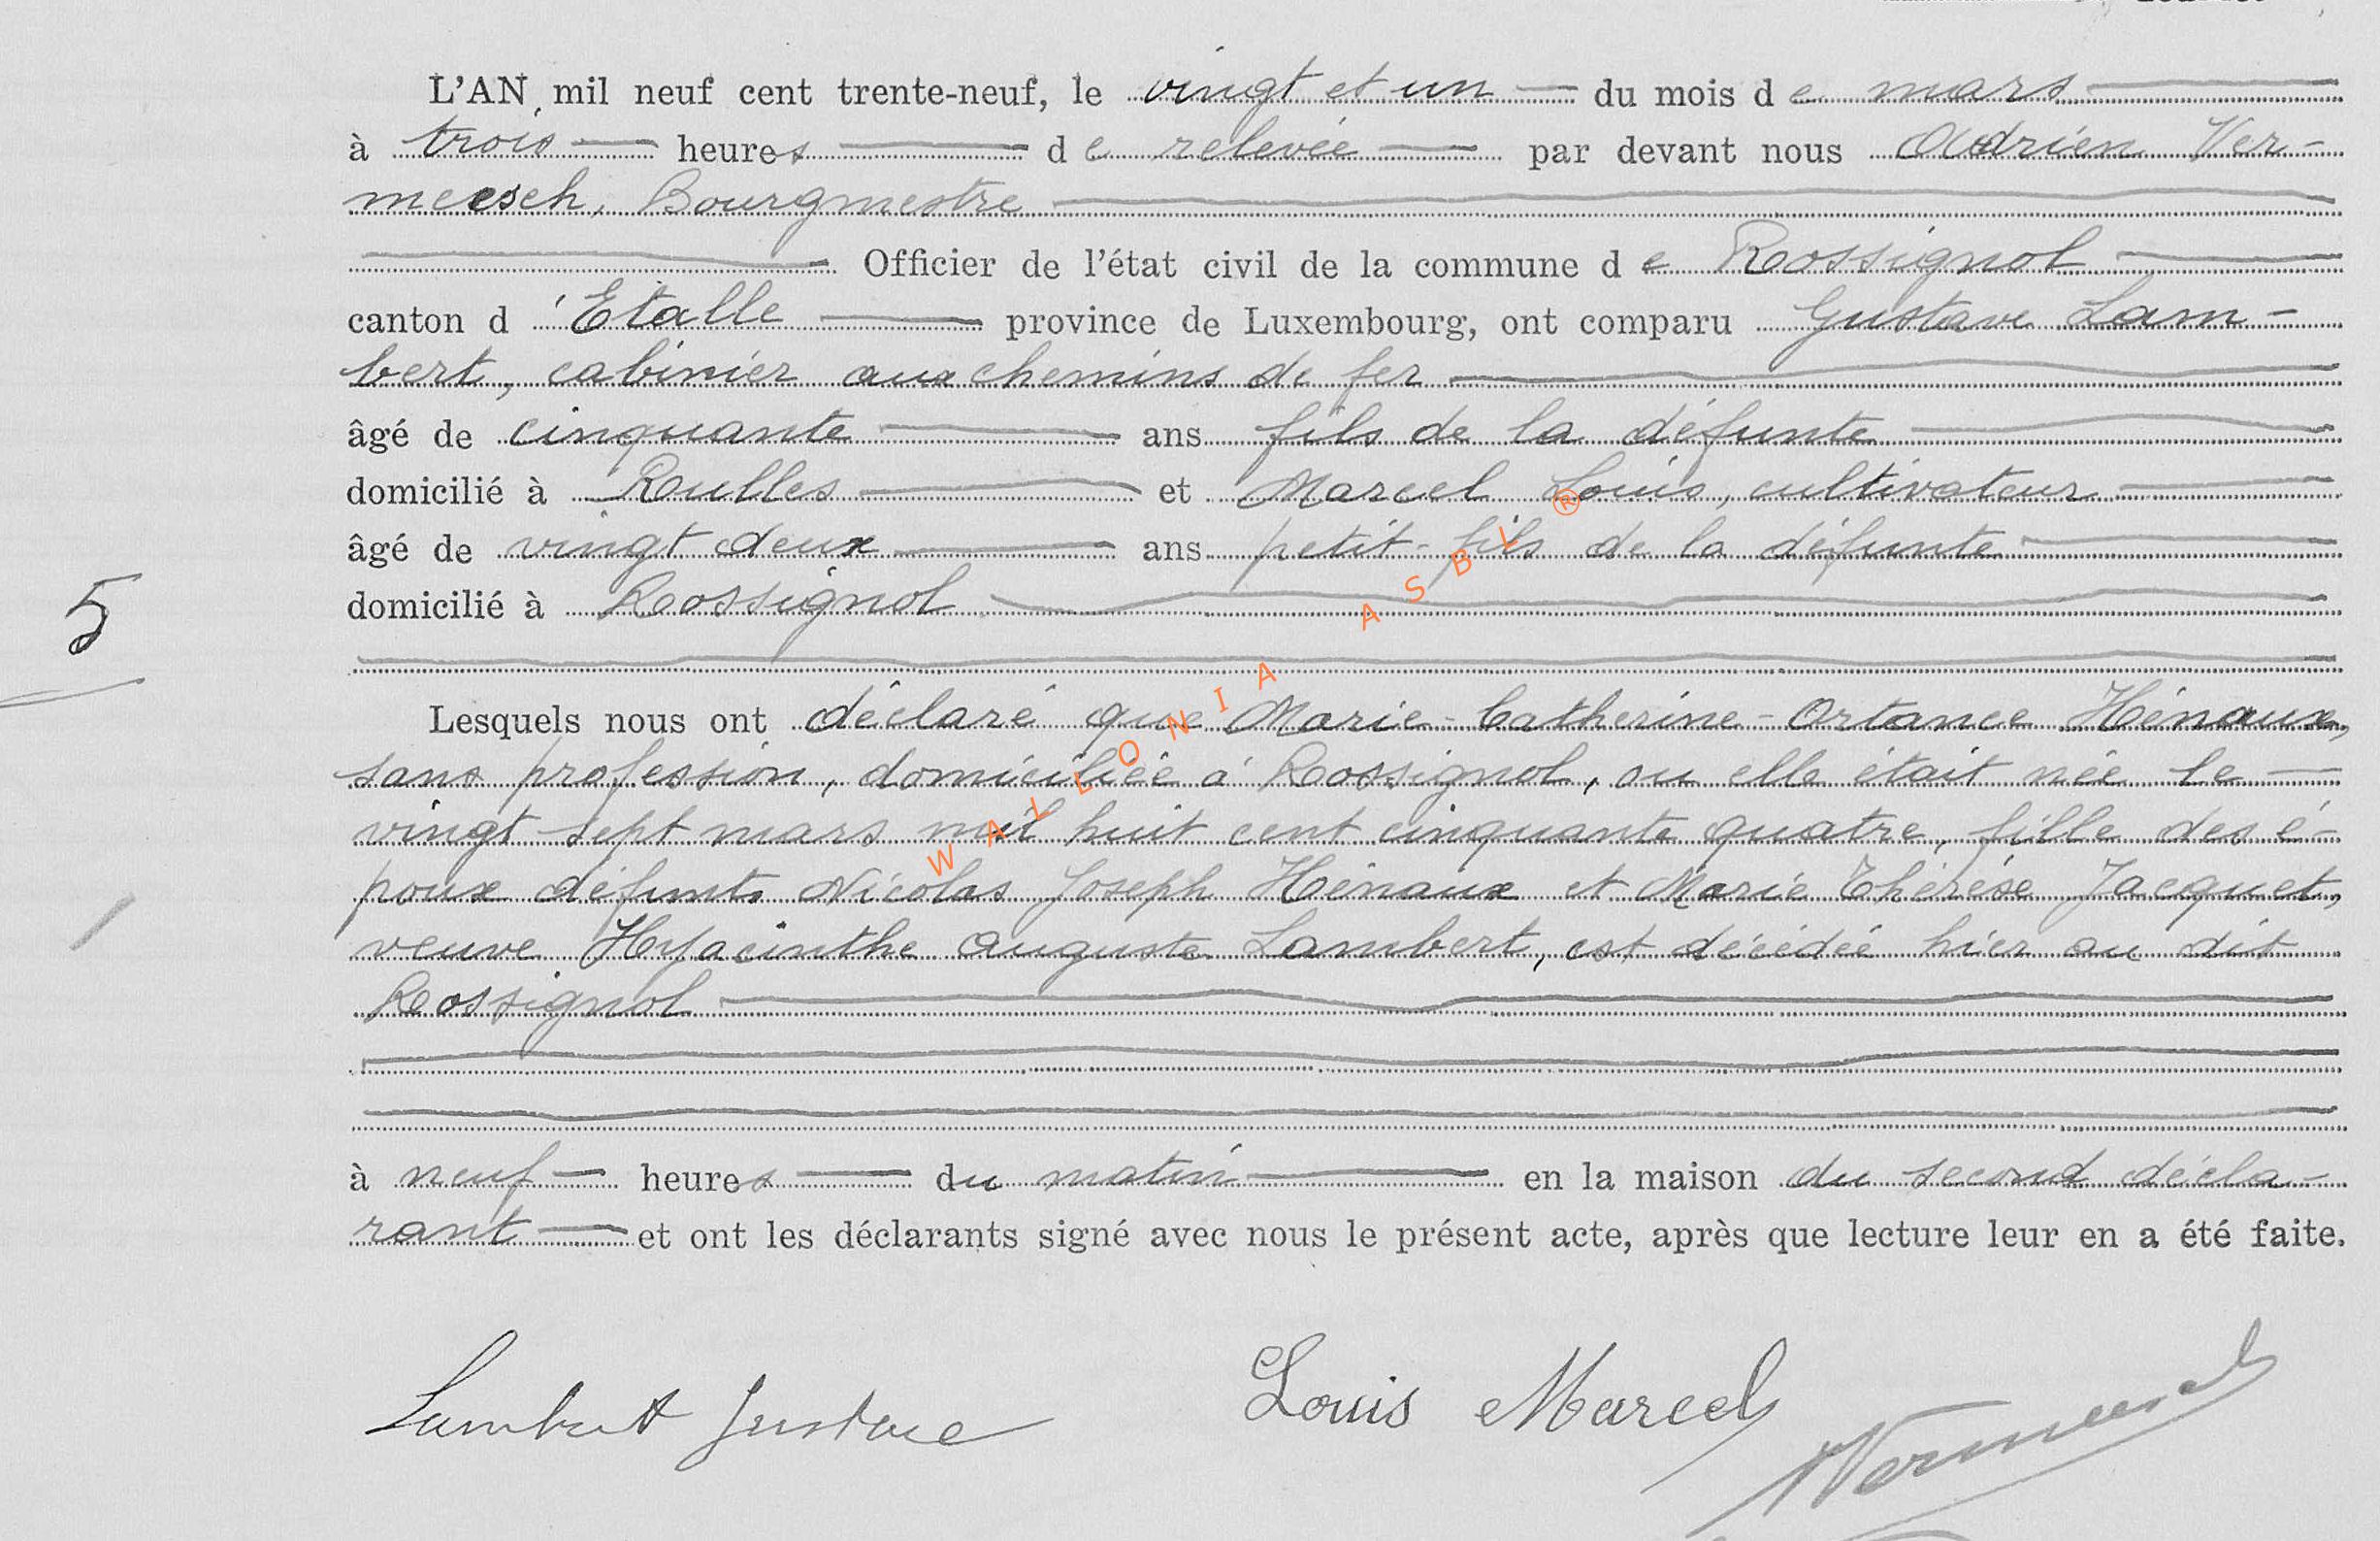 L'AN mil neuf cent trente-neuf, le vingt et un du mois de mars
à trois heures de relevée par devant nous Adrien Ver-
meesch, Bourgmestre
Officier de l'état civil de la commune de Rossignol
canton d'Etalle province de Luxembourg, ont comparu Gustave Lam-
bert, cabinier aux chemins de fer
âgé de cinquante ans fils de la défunte
domicilié à Rulles et Marcel Louis, cultivateur
âgé de vingt deux ans petit-fils de la défunte
5
domicilié à Rossignol
Lesquels nous ont déclaré que Marie-Catherine-Ortance Hénaux,
sans profession, domiciliée à Rossignol, ou elle était née le
vingt-sept mars mil huit cent cinquante quatre, fille des é-
poux défunts Nicolas Joseph Hénaux et Marie Thérèse Jacquet,
veuve Hyacinthe Auguste Lambert, est décédée hier au dit
Rossignol
à neuf heures du matin en la maison du second décla-
rant et ont les déclarants signé avec nous le présent acte, après que lecture leur en a été faite.
Lambert Gustave Louis Marcel
AVermeesch
WALLONIA ASBL ®